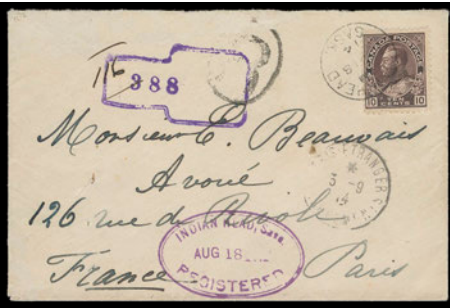 116
388
CANADA POSTAGE
10 TEN CENTS 10
Monsieur E. Beauvais
Avoué
126 rue de Rivoli
France Paris
ETRANGER
INDIAN HEAD, Sask.
AUG 18
REGISTERED